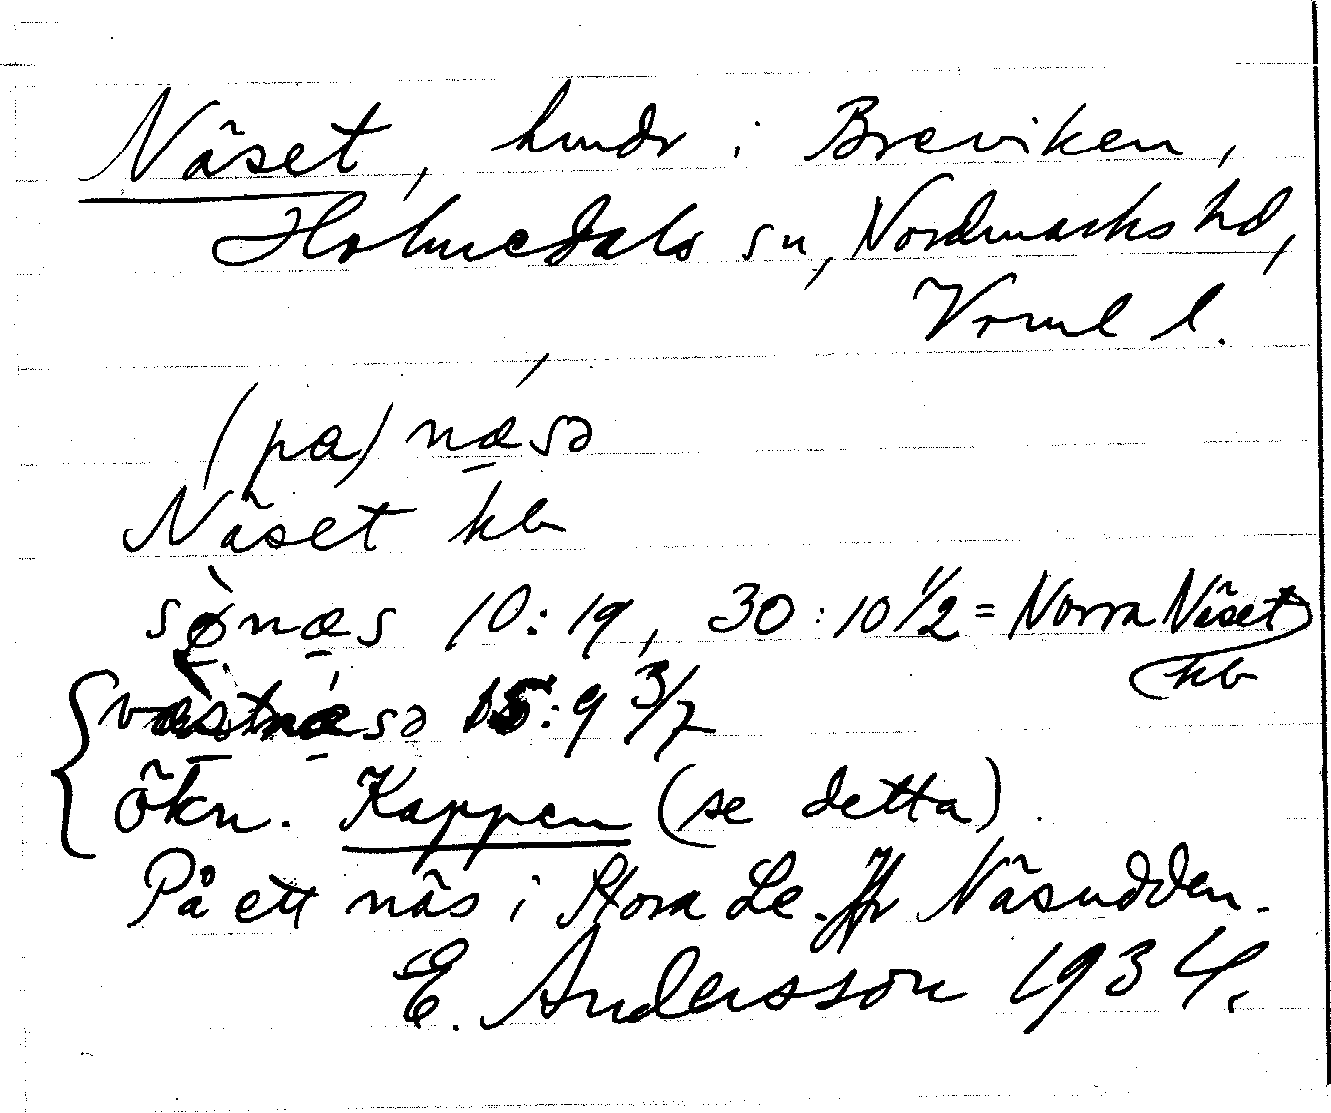 Näset, hmdr i Breviken,
Holmedals sn, Nordmarks hd,
Vrml l.
(pa) næsə
Näset kb
sønæs 10:19, 30:10 1/2 = Norra Näset
kb
væstnæsə 15:9 3/7
ökn. Kappen (se detta)
På ett näs i Stora Le. Jfr Näsudden.
E. Andersson 1934.